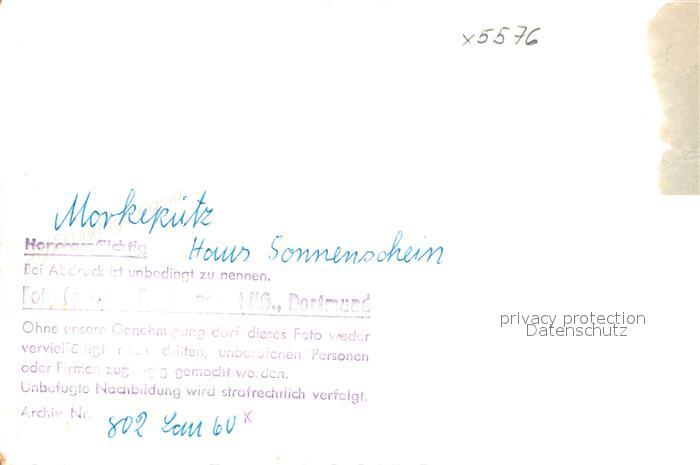 x5576
Morkepütz
Honorarpflichtig Haus Sonnenschein
Bei Abdruck ist unbedingt zu nennen.
Foto KG., Dortmund
privacy protection
Datenschutz
Ohne unsere Genehmigung darf dieses Foto weder
vervielfältigt noch dritten, unberufenen Personen
oder Firmen zugängig gemacht werden.
Unbefugte Nachbildung wird strafrechtlich verfolgt.
Archiv Nr. 802 Lau 60 K